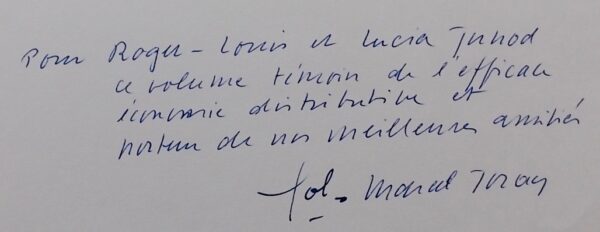 Pour Roger-Louis et Lucia Junod
ce volume témoin de l'efficace
économie distributive et
porteur de nos meilleures amitiés
Marcel Joray